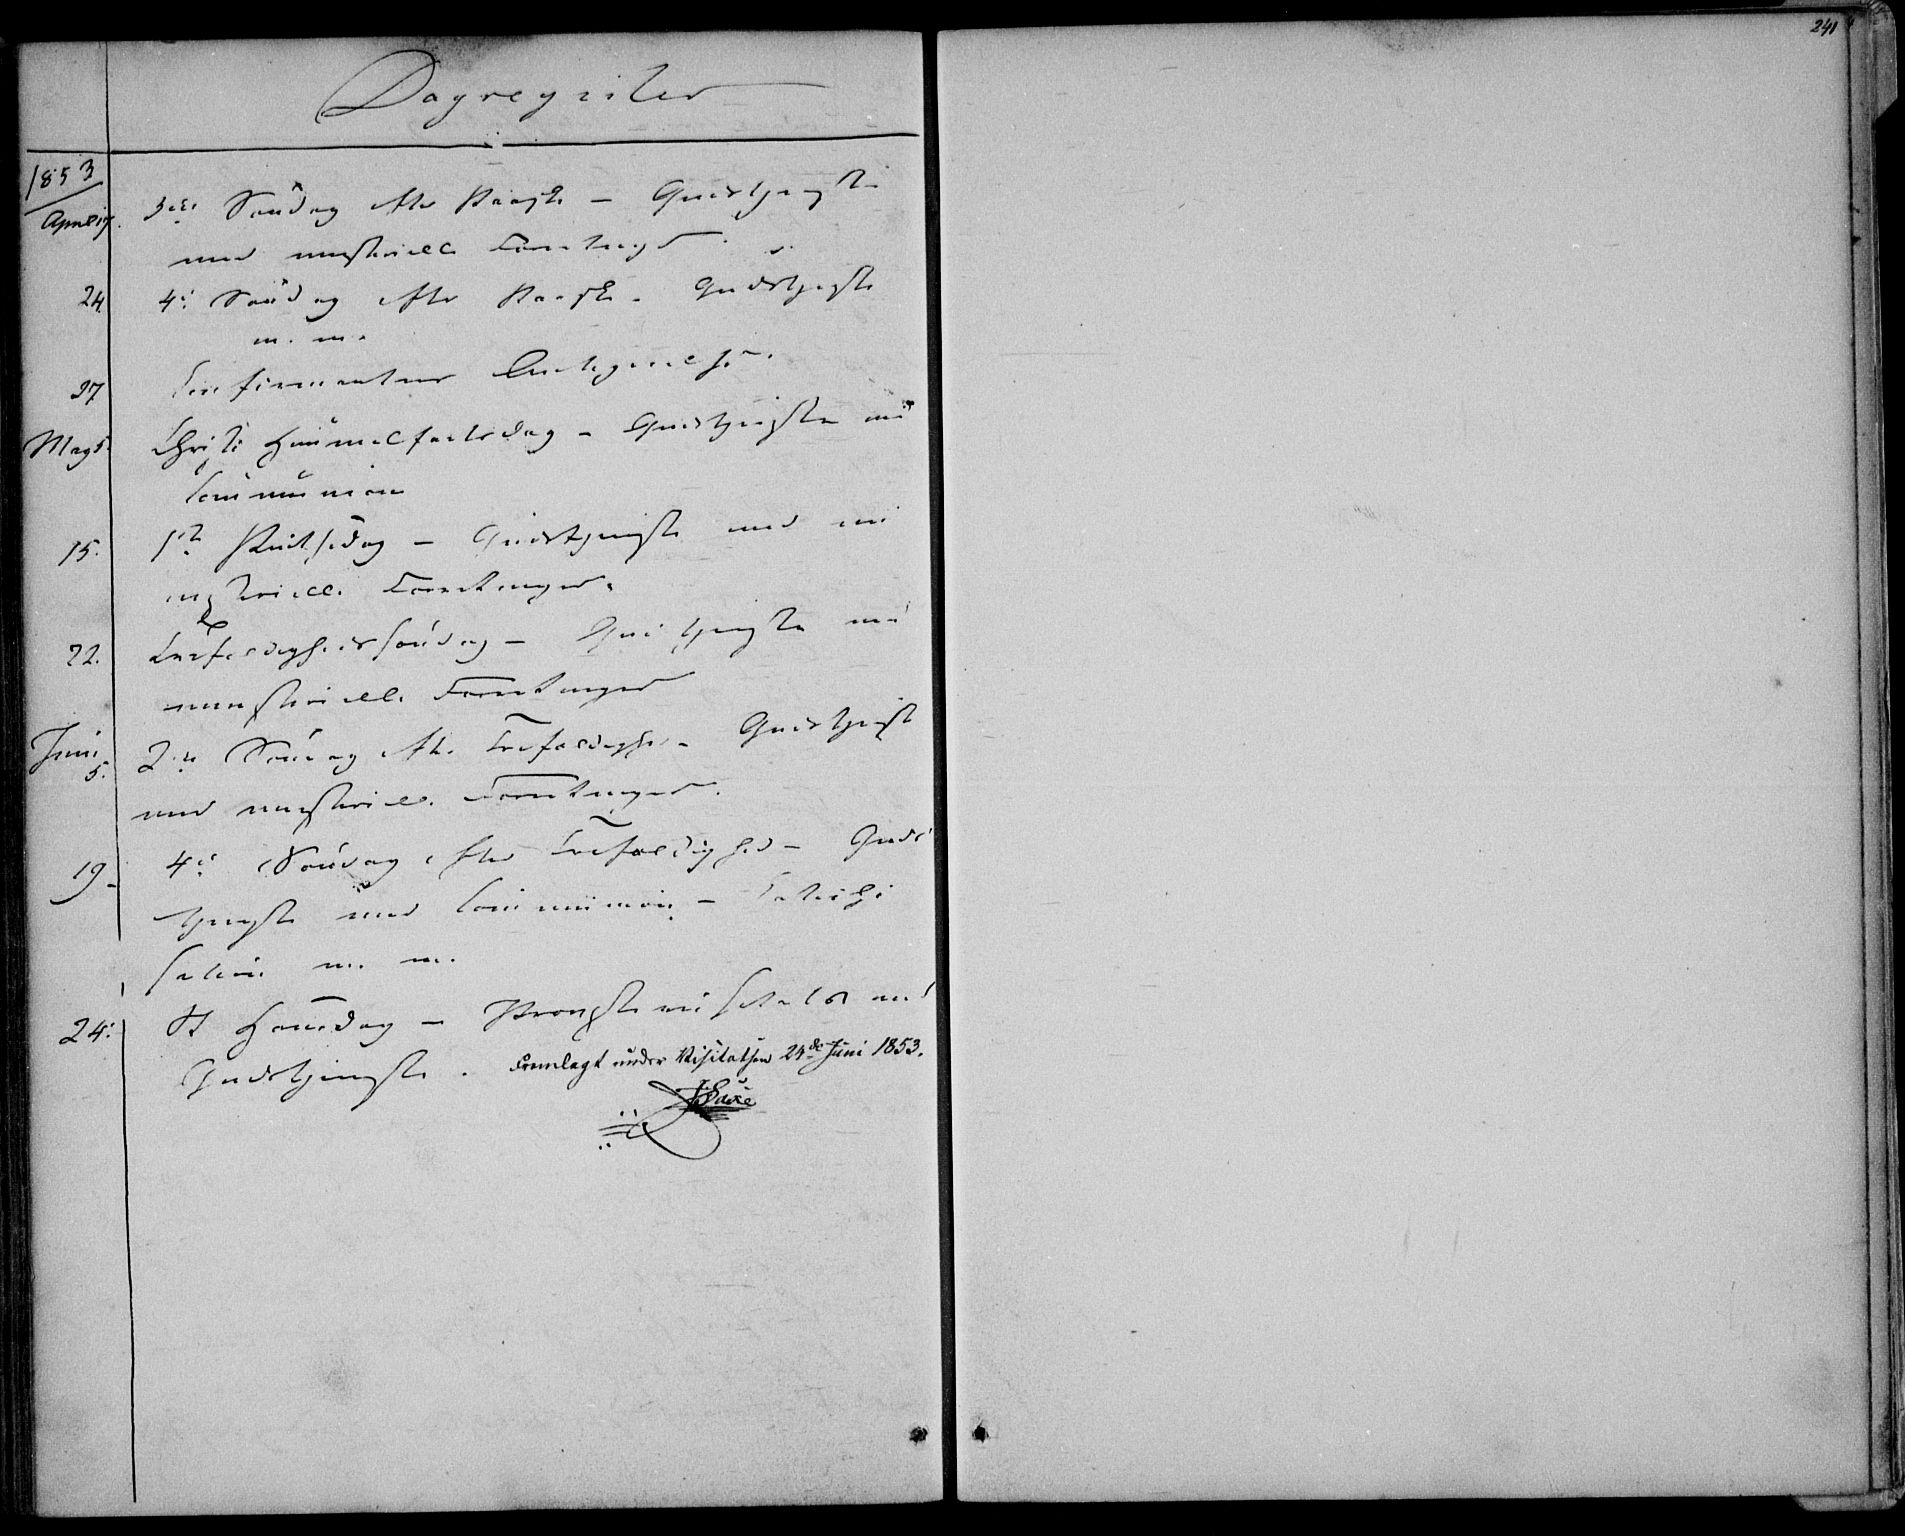 241
Dagregister
1853
April 17. 3die Søndag efter Paaske - Gudstjeneste
med ministerielle Forretninger.
24. 4de Søndag efter Paaske. Gudstjeneste
m. m.
27 Confirmanternes Antagelse.
May 5. Christi Himmelfartsdag - Gudstjeneste med
Communion
15. 1ste Pintsedag - Gudstjeneste med mi
nisterielle Forretninger.
22. Trefoldighedssøndag - Gudstjeneste med
ministerielle Forretninger
Juni 5. 2den Søndag efter Trefoldighed - Gudstjeneste
med ministerielle Forretninger.
19 - 4de Søndag efter Trefoldighed - Guds
tjeneste med Communion - Catechi
sation m. m.
24. St Hansdag - Provstevisitats med
Gudstjeneste. Fremlagt under Visitatsen 24de Juni 1853.